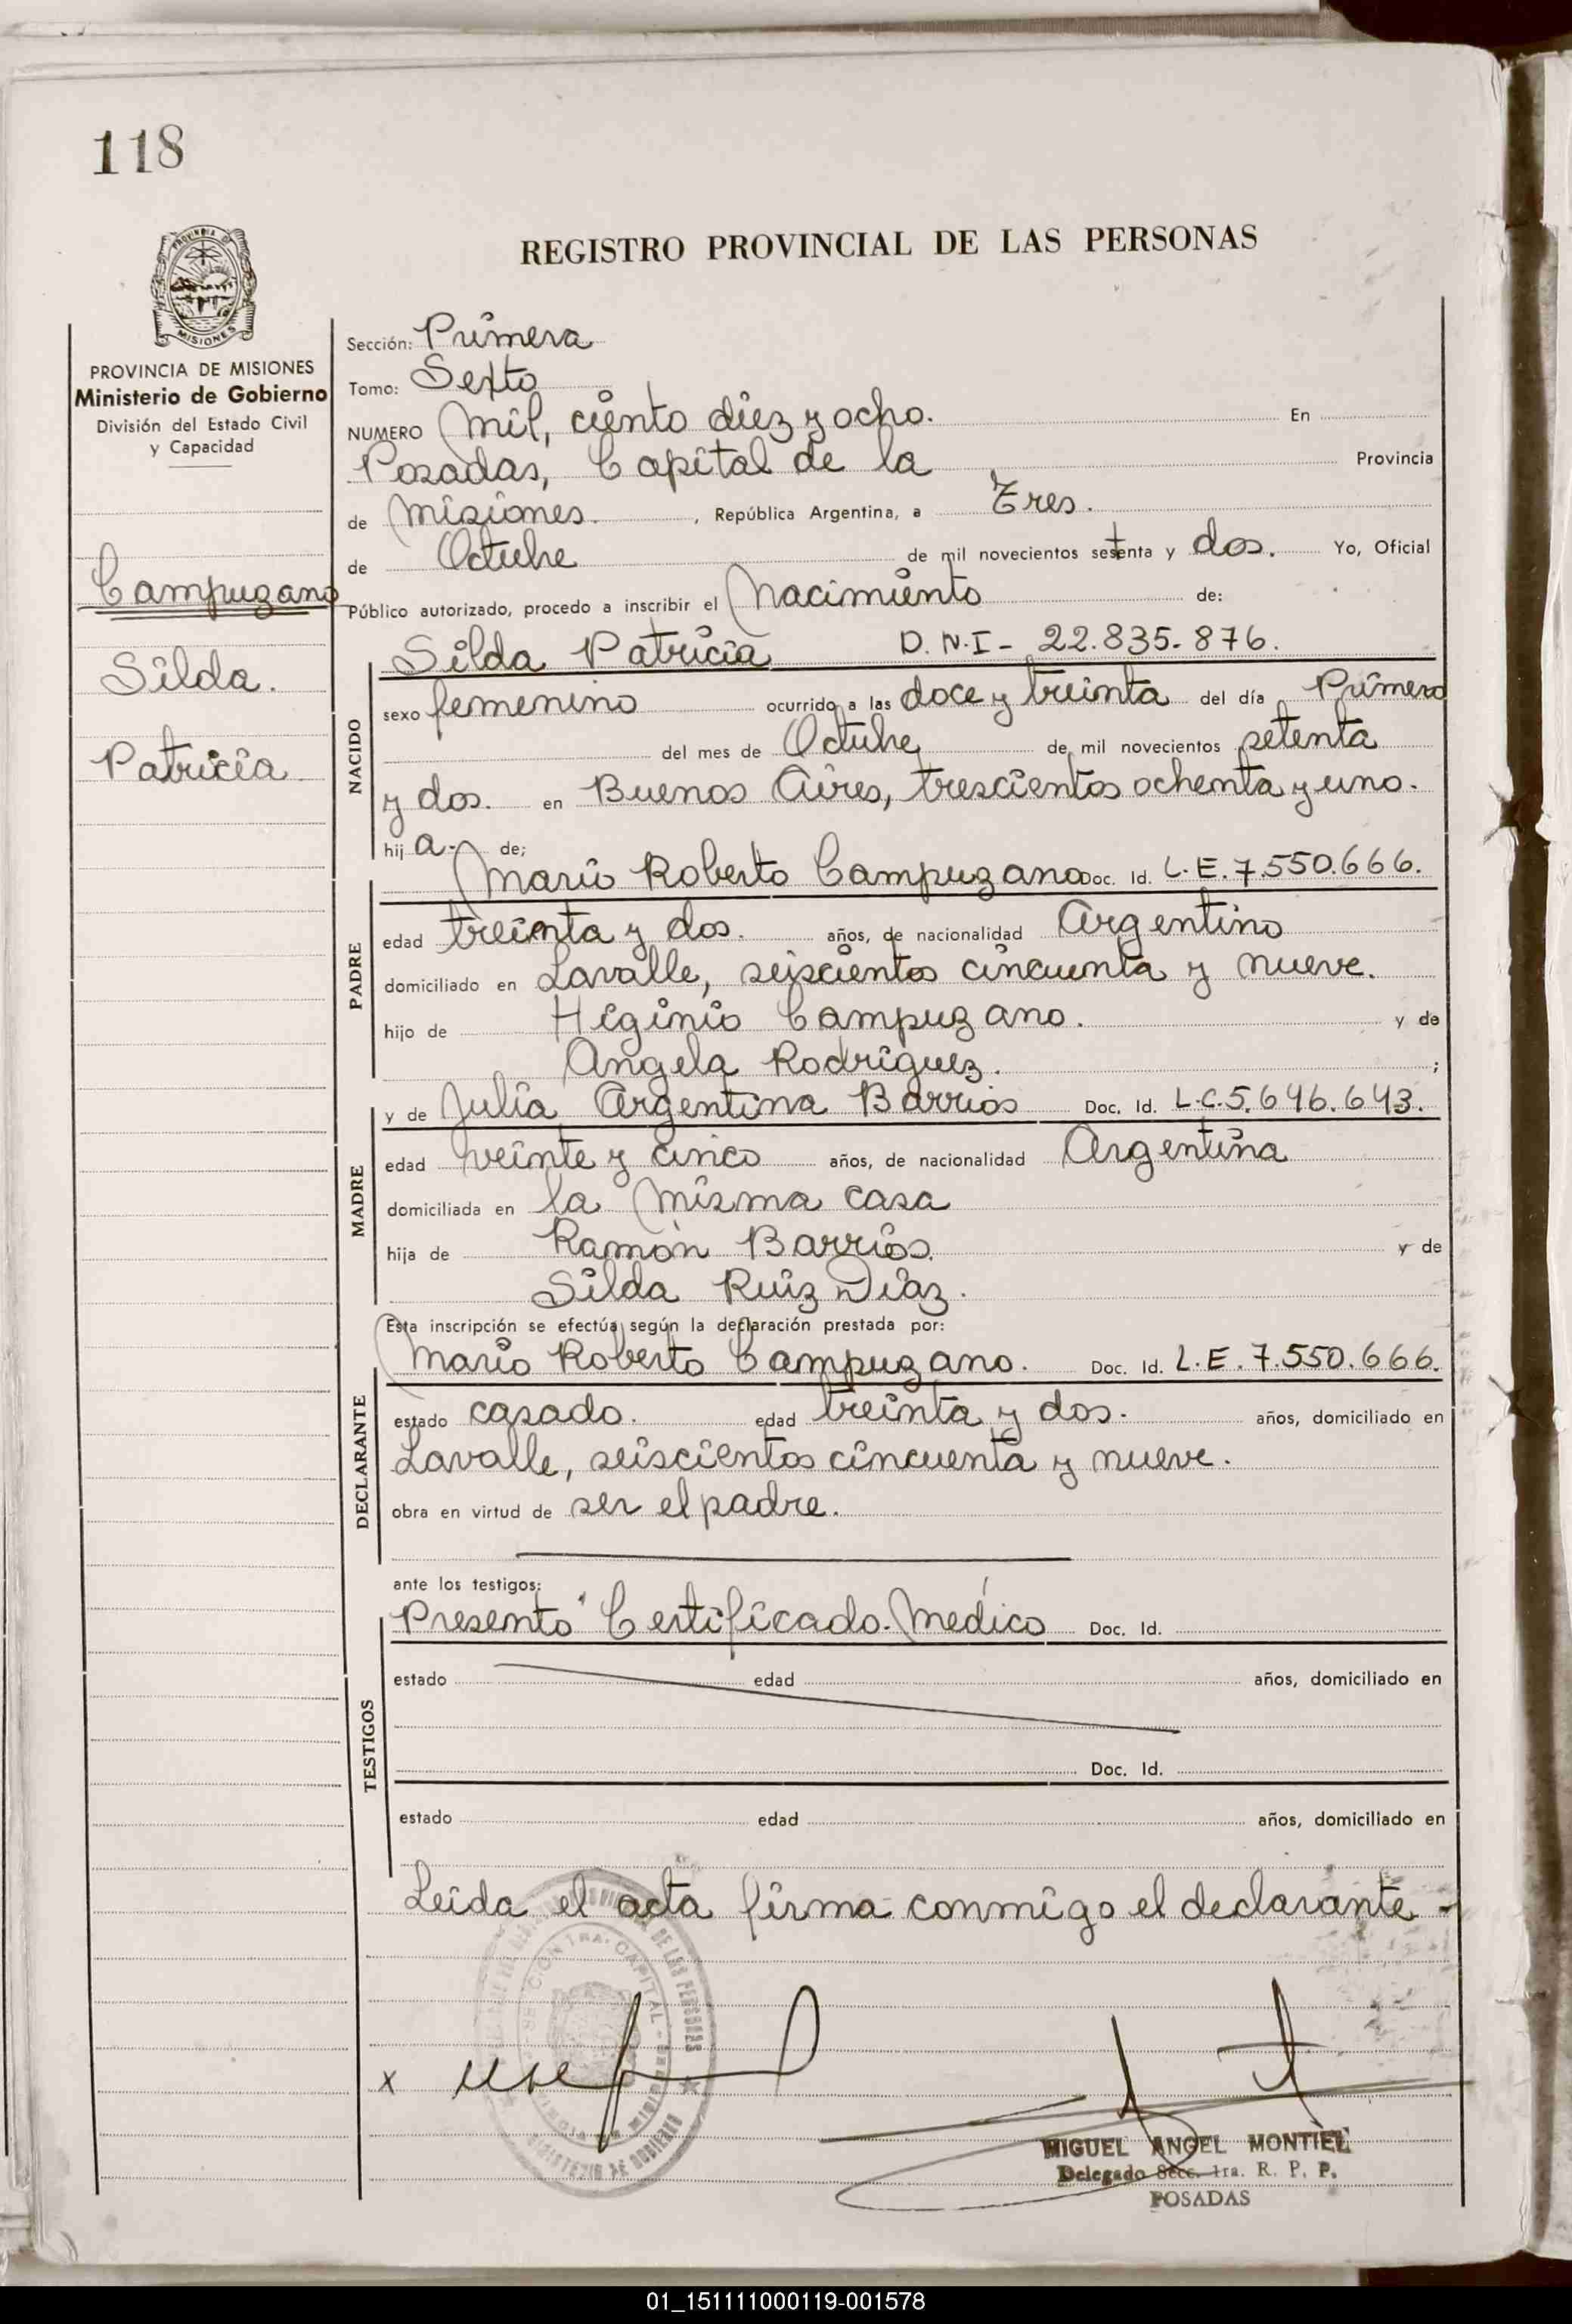 118
REGISTRO PROVINCIAL DE LAS PERSONAS
PROVINCIA DE MISIONES
Ministerio de Gobierno
División del Estado Civil
y Capacidad
Campuzano
Silda.
Patricia
Sección: Primera
Tomo: Sexto
NUMERO Mil, ciento diez y ocho. En
Posadas, Capital de la Provincia
de Misiones. , República Argentina, a Tres.
de Octubre de mil novecientos setenta y dos. Yo, Oficial
Público autorizado, procedo a inscribir el Nacimiento de:
Silda Patricia D.N.I - 22.835.876.
NACIDO
sexo femenino ocurrido a las doce y treinta del día Primero
del mes de Octubre de mil novecientos setenta
y dos. en Buenos Aires, trescientos ochenta y uno.
hij a. de;
PADRE
Mario Roberto Campuzano Doc. Id. L.E. 7.550.666.
edad treinta y dos. años, de nacionalidad Argentino
domiciliado en Lavalle, seiscientos cincuenta y nueve.
hijo de Higinio Campuzano. y de
Angela Rodríguez. ;
MADRE
y de Julia Argentina Barrios Doc. Id. L.C. 5.646.643.
edad veinte y cinco años, de nacionalidad Argentina
domiciliada en la Misma casa
hija de Ramón Barrios. y de
Silda Ruiz Diaz.
Esta inscripción se efectúa según la declaración prestada por:
DECLARANTE
Mario Roberto Campuzano. Doc. Id. L.E. 7.550.666.
estado casado. edad treinta y dos. años, domiciliado en
Lavalle, seiscientos cincuenta y nueve.
obra en virtud de ser el padre.
ante los testigos:
TESTIGOS
Presentó Certificado. Médico Doc. Id.
estado edad años, domiciliado en
Doc. Id.
estado edad años, domiciliado en
Leida el acta firma conmigo el declarante -
x
MIGUEL ANGEL MONTIEL
Delegado Secc. 1ra. R. P. P.
POSADAS
01_151111000119-001578